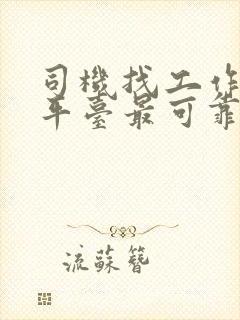 司機找工作
平臺最可靠
流蘇簪